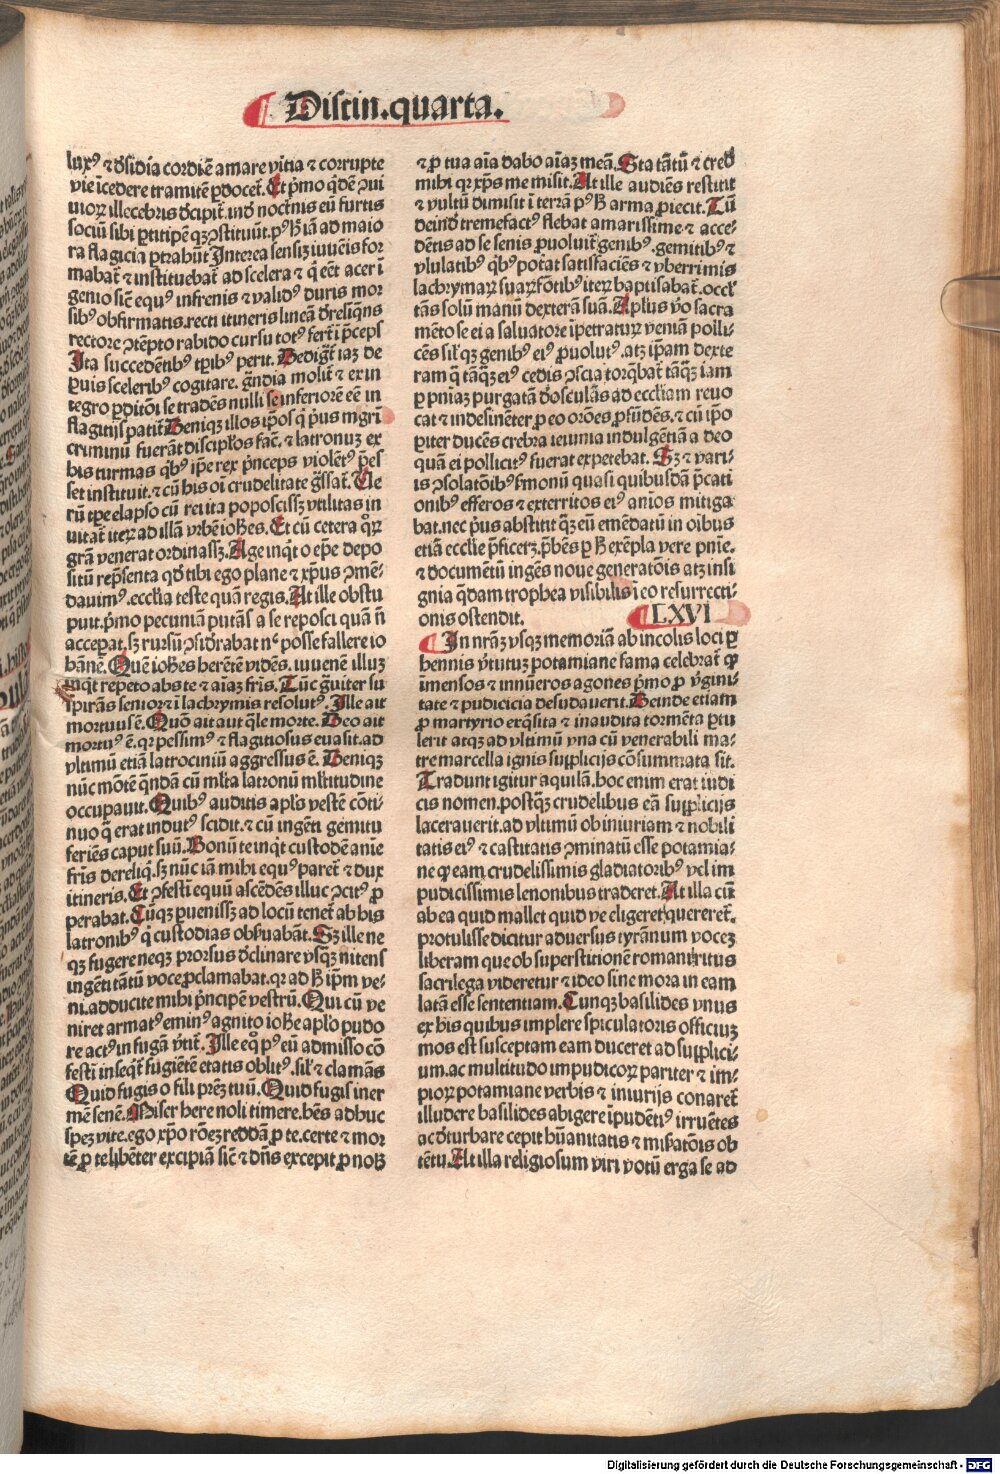 Distin.quarta.
luxꝰ ⁊ dʼsidia cordiē amare vitia ⁊ corrupte
vie īcedere tramitē ꝑdocet̄. Et pͥmo qͥdē ꝯui
uioꝝ illecebris dʼcipit̄. inō noctͥnis eū furtis
sociū sibi ꝑtitipē qꝫ ꝯstituūt. pꝰ ꝫ iā ad maio
ra flagicia ꝑtrahūt Interea sensiꝫ iuuēis for
mabat̄ ⁊ instituebat̄ ad scelera ⁊ qͥ eēt acer ī
genio sic̄ equꝰ infrenis ⁊ validꝰ duris mor
sibꝰ obfirmatis.recti itineris lineā dʼreliqͥns
rectore ꝯtēpto rabido cursu totꝰ fert̄ ī p̄ceps
Ita succedētibꝰ tꝑibꝰ perit. Dedigt̄ iaꝫ de
ꝑuis sceleribꝰ cogitare. gͣndia molit̄ ⁊ ex in
tegro ꝑditōi se tradēs nulli se inferiorē eē in
flagitijs patit̄ Deniqꝫ illos ip̄os qͥ pͥus mgrī
criminū fuerāt discipl̓os fac̄. ⁊ latronuꝫ ex
his turmas qͥbꝰ ip̄e rex pͥnceps violēt̓ p̄es
set instituit. ⁊ cū his oī crudelitate gͣssat̄. Ue
rū tꝑe elapso cū rei ita poposcissꝫ vtilitas in
uitat̄ iteꝝ ad illā vrbē ioh̄es. Et cū cetera qͦꝝ
grā venerat ordinassꝫ. Age inqͥt o ep̄e depo
sitū repn̄senta qd̓ tibi ego plane ⁊ xp̄us ꝯmē-
dauimꝰ.ecclīa teste quā regis. At ille obstu
puit. pͥmo pecuniā putās a se reposci quā n̄
accepat. sꝫ rursū ꝯsidʼrabat ncͨ posse fallere io
hānē. Quē ioh̄es herētē vidēs. iuuenē illuꝫ
inqͥt repeto abs te ⁊ aīaꝫ fr̄is. Tūc gͣuiter su
spirās senior ⁊ ī lachrymis resolutꝰ. Ille ait
mortuus ē. Quō ait aut qͣle morte. Deo ait
mortuꝰ ē. qꝛ pessimꝰ ⁊ flagitiosus euasit. ad
vltimū etiā latrociniū aggressus ē. Deniqꝫ
nūc mōtē qͥndā cū ml̓ta latronū ml̓titudine
occupauit. Quibꝰ auditis apl̓us vestē cōti-
nuo qͣ erat indutꝰ scidit. ⁊ cū ingēti gemitu
feriēs caput suū. Bonū te inqͥt custodē anie
fr̄is dereliqͥ. sꝫ nūc iā mihi equꝰ paret̄ ⁊ dux
itineris. Et ꝯfestī equū ascēdēs illuc ꝯcitꝰ ꝓ
perabat. Cūqꝫ ꝑuenissꝫ ad locū tenet̄ ab his
latronibꝰ qͥ custodias obsʼuabāt. Sꝫ ille ne
qꝫ fugere neqꝫ prorsus dʼclinare vsqͣꝫ nitens
ingēti tātū voce ꝓclamabat. qꝛ ad ꝫ ip̄m ve-
ni. adducite mihi pͥncipē vestrū. Qui cū ve
niret armatꝰ eminꝰ agnito ioh̄e apl̓o pudo
re actꝰ in fugā vʼtit̄. Ille eqͦ pꝰ eū admisso cō
festī inseqͥt̄ fugiētē etatis oblitꝰ. sil̓ ⁊ clamās
Quid fugis o fili prēꝫ tuū. Quid fugis iner
mē senē. Miser here noli timere. hēs adhuc
speꝫ vite. ego xp̄o rōeꝫ reddā ꝓ te. certe ⁊ mor
tē ꝓ te libēter excipiā sic̄ ⁊ dn̄s excepit ꝓ nob̄
⁊ ꝓ tua aīa dabo aīaꝫ meā. Sta tātū ⁊ cred̄
mihi qꝛ xp̄s me misit. At ille audiēs restitit
⁊ vultū dimisit ī terrā pꝰ ꝫ arma ꝓiecit. Tū
deinō tremefactꝰ flebat amarissime ⁊ acce-
dētis ad se senis ꝓuoluit̄ genibꝰ. gemitibꝰ ⁊
vlulatibꝰ qͥbꝰ potat̄ satisfaciēs ⁊ vberrimis
lachrymaꝝ suaꝝ fōtibꝰ iteꝝ baptisabat̄. occl̓
tās solū manū dexterā suā. Apl̓us vʼo sacra
mēto se ei a saluatore īpetratuꝝ veniā polli-
cēs sil̓qꝫ genibꝰ eiꝰ ꝓuolutꝰ. atꝫ ip̄am dexte
ram qͣ tāqͣꝫ eiꝰ cedis ꝯscia torqͥbat̄ tāqͣꝫ iam
ꝑ pn̄iaꝫ purgatā dʼosculās ad eccl̓iam reuo
cat ⁊ indesinēter ꝓ eo orōes ꝓfūdēs. ⁊ cū ip̄o
ꝑiter ducēs crebra ieiunia indulgētiā a deo
quā ei pollicitꝰ fuerat expetebat. Sꝫ ⁊ vari-
is ꝯsolatōibꝰ sʼmonū quasi quibusdā p̄cati
onibꝰ efferos ⁊ exterritos eiꝰ anīos mitiga
bat. nec pͥus abstitit qͣꝫ eū emēdatū in oībus
etiā ecclīe p̄ficeꝫ. p̄bēs ꝑ ꝫ exēpla vere pn̄ie.
⁊ documētū ingēs noue generatōis atꝫ insi
gnia qͥdam trophea visibilis ī eo resurrecti-
onis ostendit. LXVI
In nrāꝫ vsqꝫ memoriā ab incolis loci ꝑ
hennis vʼtutuꝫ potamiane fama celebrat̄ qͥ
imensos ⁊ innūeros agones pͥmo ꝓ vʼgini-
tate ⁊ pudicicia desudauerit. Deinde etiam
ꝓ martyrio exqͥsita ⁊ inaudita tormēta ꝑtu
lerit atqꝫ ad vltimū vna cū venerabili ma-
tre marcella ignis supplicijs cōsummata sit.
Tradunt igitur aquilā. hoc enim erat iudi
cis nomen. postqͣꝫ crudelibus eā supplicijs
lacerauerit. ad vltimū ob iniuriam ⁊ nobili
tatis eiꝰ ⁊ castitatis ꝯminatū esse potamia-
ne qͥ eam crudelissimis gladiatoribꝰ vel im
pudicissimis lenonibus traderet. At illa cū
ab ea quid mallet quid ve eligeret quereret̄.
protulisse dicitur aduersus tyrānum voceꝫ
liberam que ob superstitionē romani ritus
sacrilega videretur ⁊ ideo sine mora in eam
latā esse sententiam. Cunqꝫ basilides vnus
ex his quibus implere spiculatoris officiuꝫ
mos est susceptam eam duceret ad supplici-
um. ac multitudo impudicoꝝ pariter ⁊ im-
pioꝝ potamiane verbis ⁊ iniurijs conaret̄
illudere basilides abigere īpudētiꝰ irruētes
ac dʼturbare cepit hūanitatis ⁊ misʼatōis ob
tētu. At illa religiosum viri votū erga se ad
Digitalisierung gefördert durch die Deutsche Forschungsgemeinschaft - DFG